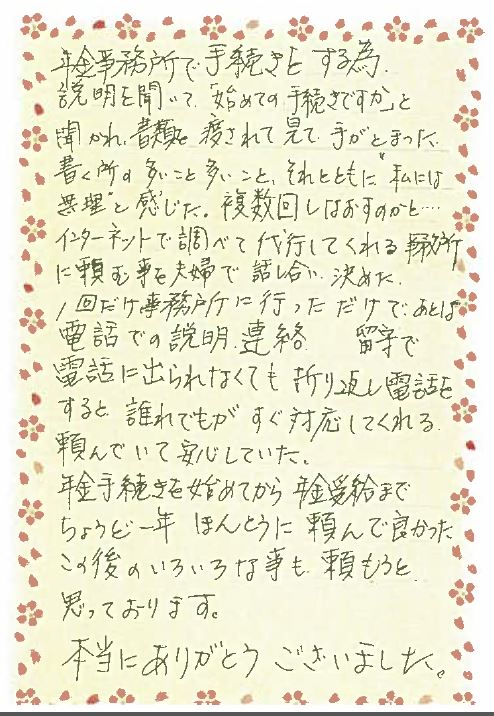 年金事務所で手続きをする為、
説明を聞いて、「始めての手続きですか」と
聞かれ、書類を渡されて見て、手がとまった。
書く所の多いこと多いこと、それとともに、“私には
無理”と感じた。複数回しはおすのかと…
インターネットで調べて代行してくれる事務所
に頼む事を夫婦で話し合い、決めた。
1回だけ事務所に行っただけで、あとは
電話での説明、連絡 留守で
電話に出られなくても折り返し電話を
すると、誰れでもがすぐ対応してくれる。
頼んでいて安心していた。
年金手続きを始めてから年金受給まで
ちょうど一年 ほんとうに頼んで良かった
この後のいろいろな事も頼もうと
思っております。
本当にありがとうございました。